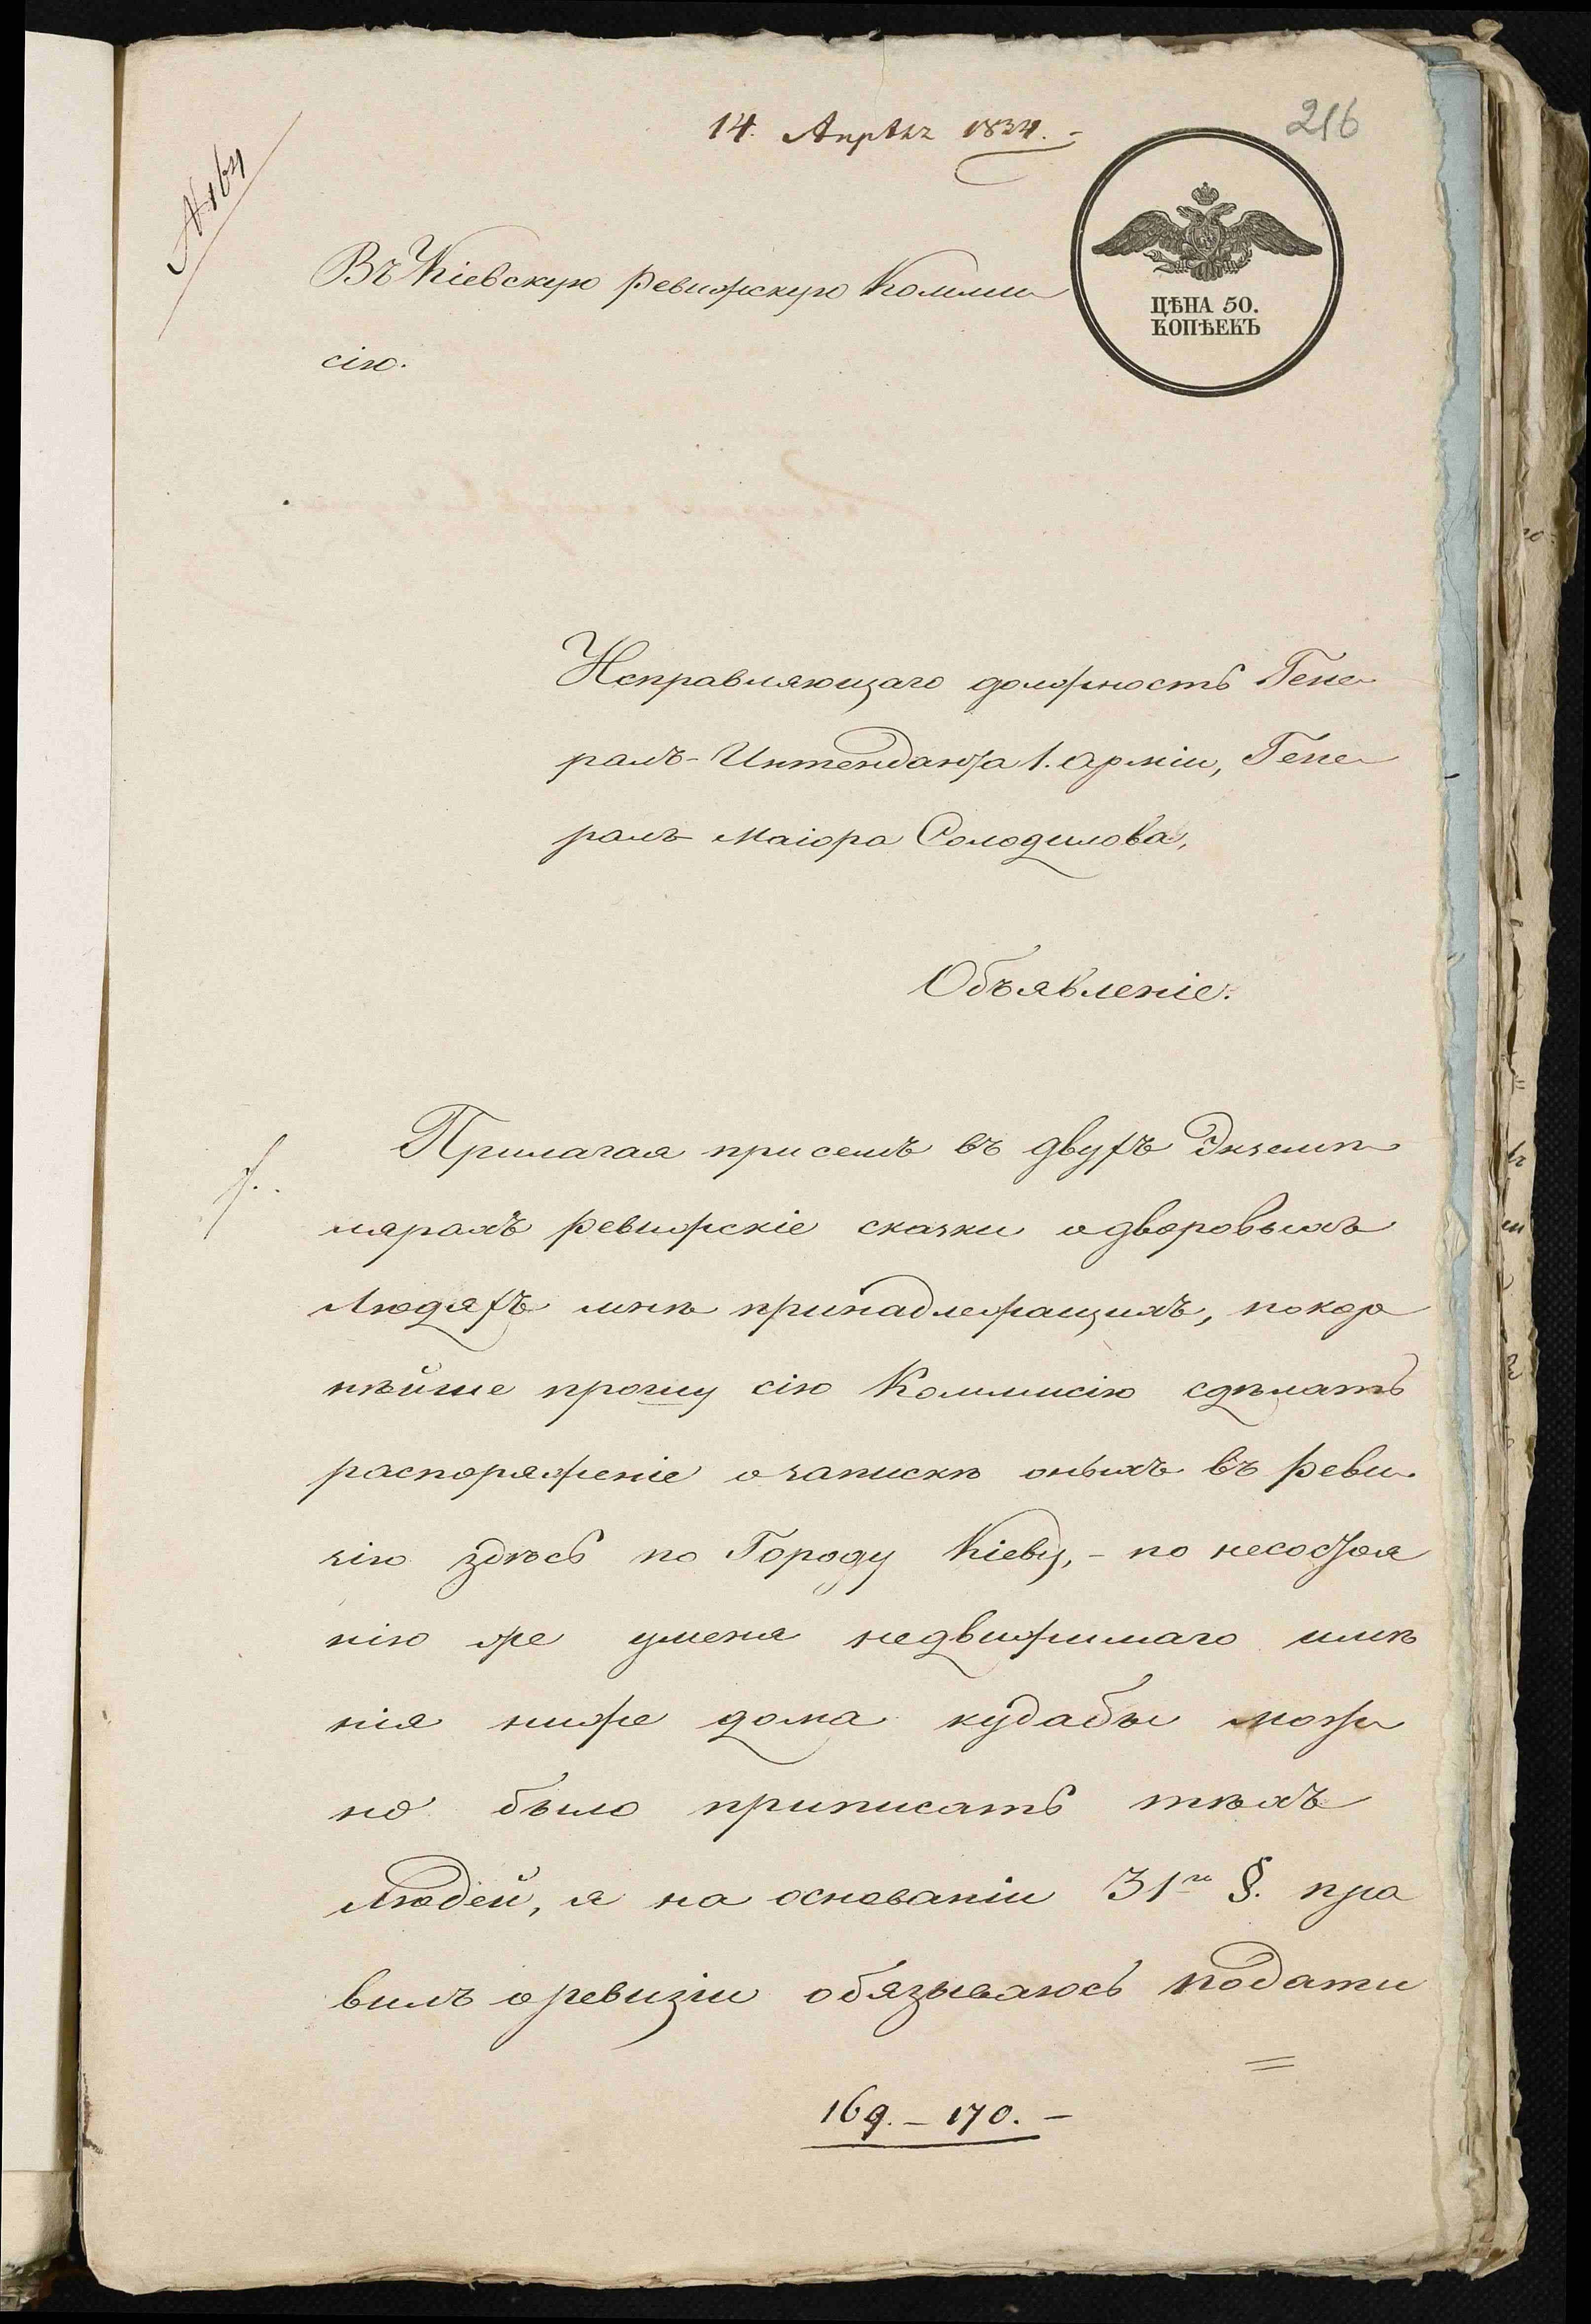 14. Апрѣля 1834.-
216
№ 164
ЦѢНА 50.
КОПѢЕКЪ
Въ Кіевскую ревижскую Комми
сію.
Исправляющаго должность Гене
ралъ-Интенданта 1. арміи, Гене
ралъ Маіора Солодилова,
Объявленіе.
Прилагая присемъ въ двухъ Экземп
лярахъ ревижскіе сказки одворовыхъ
людяхъ мнѣ принадлежащихъ, покор
нѣйше прошу сію Коммисію сдѣлать
распоряженіе о запискѣ оныхъ въ реви
зію здѣсь по Городу Кіеву,- по несостоя
нію же уменя недвижимаго имѣ
нія ниже дома кудабы мож
но было приписать тѣхъ
людей, я на основаніи 31го §. пра
вилъ оревизіи обязываюсь подати
=
169.-170.-